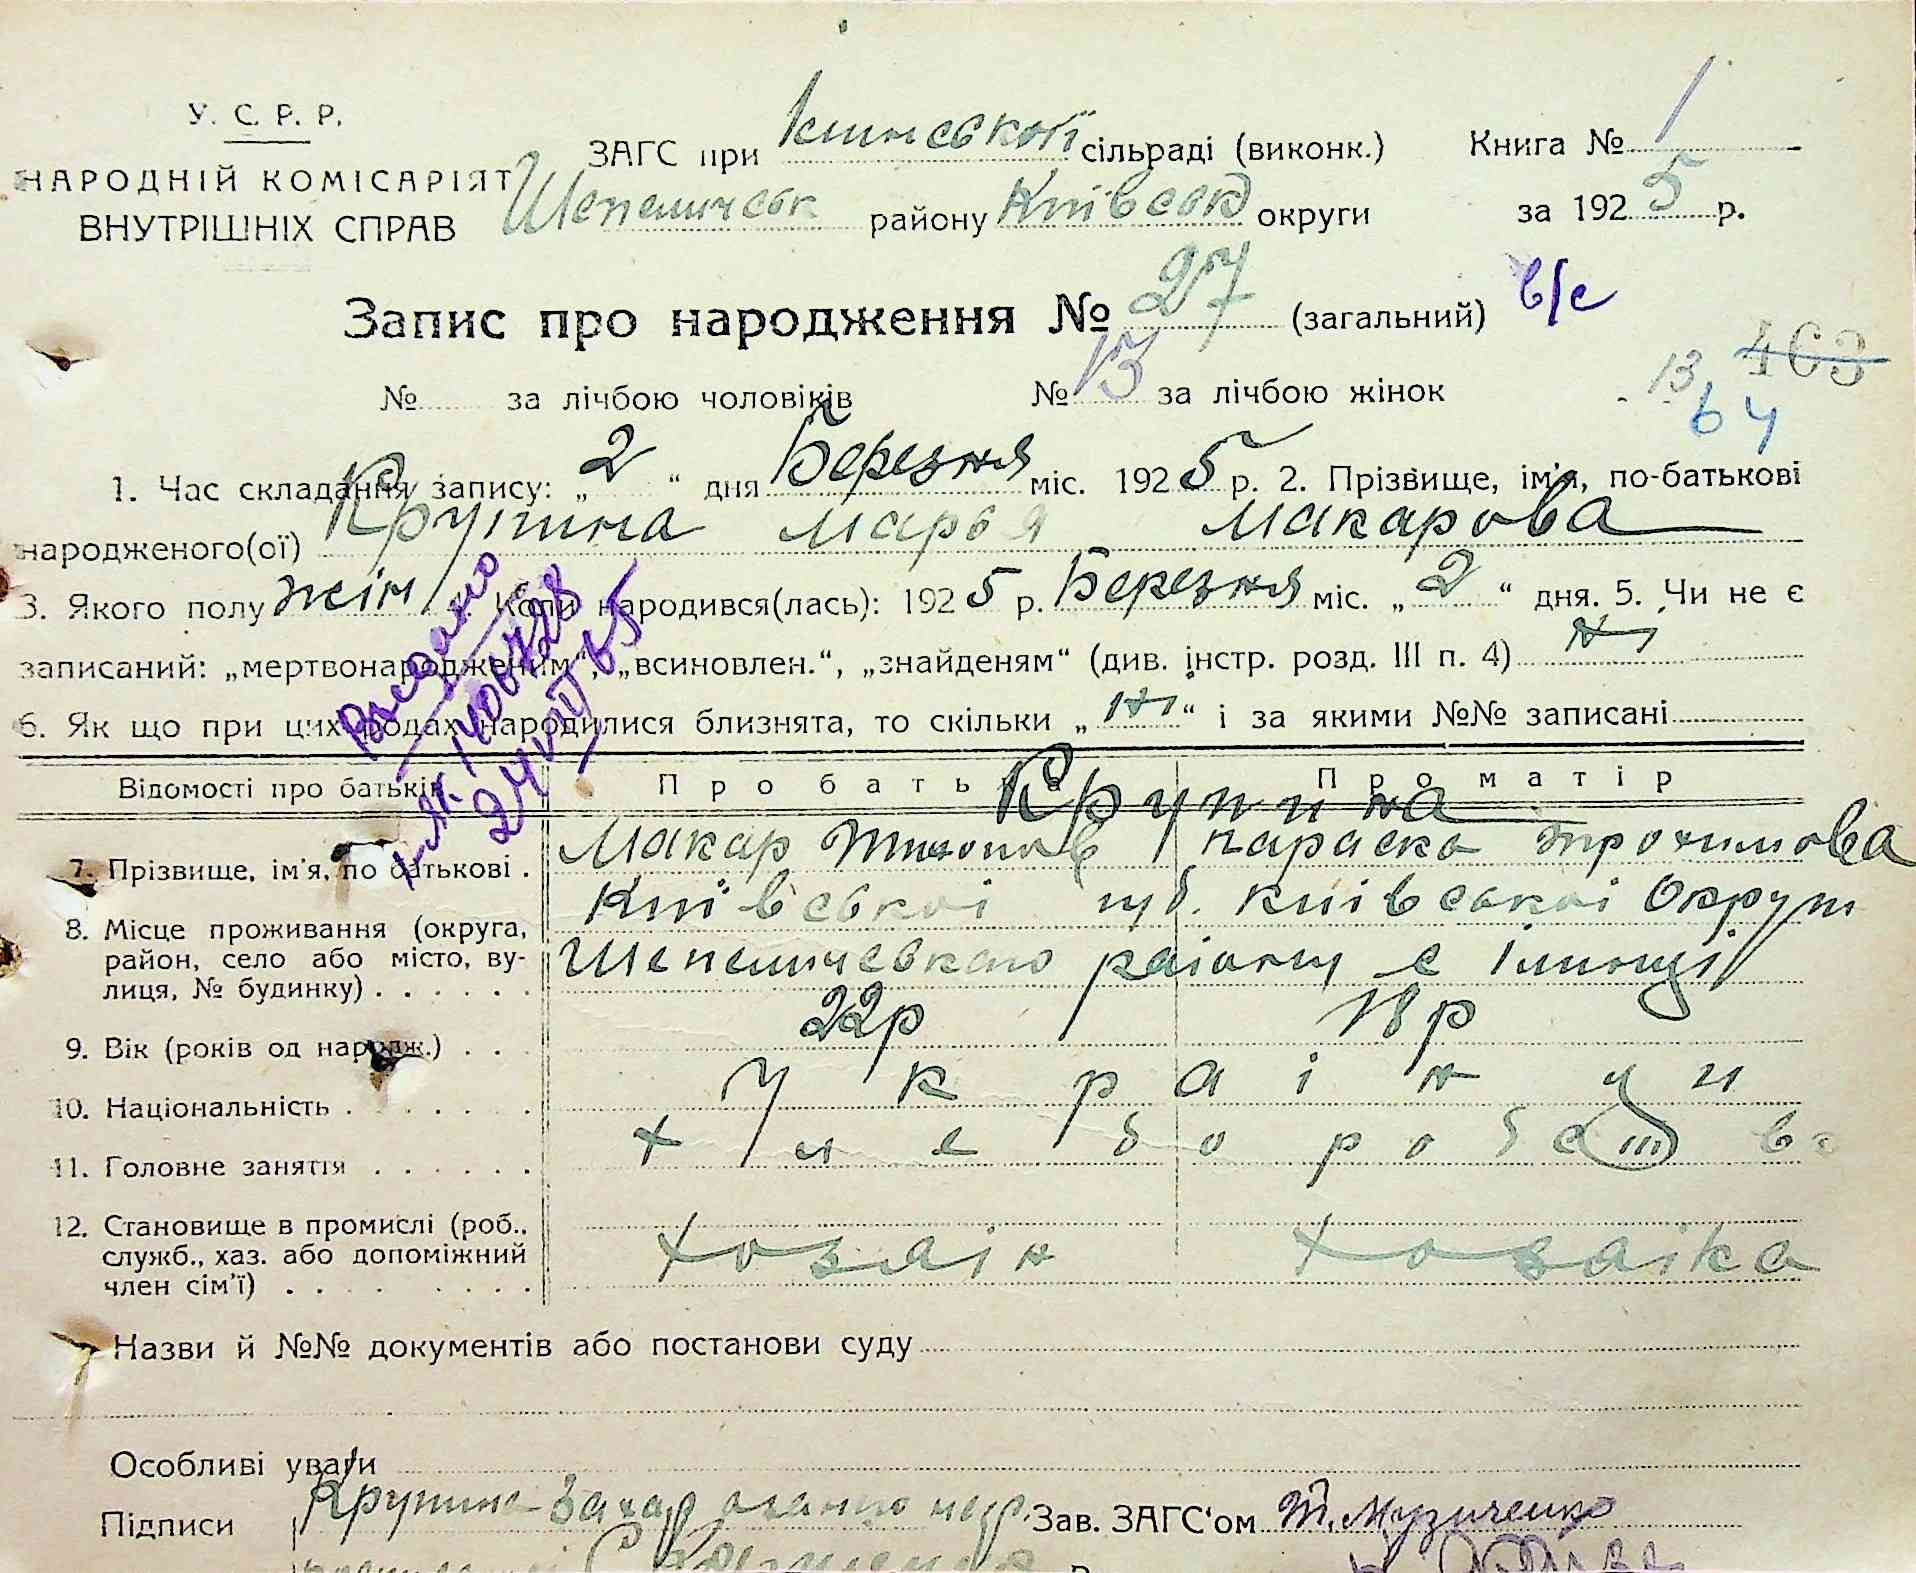 У. С. Р. Р.
НАРОДНІЙ КОМІСАРІЯТ
ВНУТРІШНІХ СПРАВ
ЗАГС при сільраді (виконк.) Книга № 1
Шепелическ району Київськ округи за 1925 р.
Запис про народження № 27 (загальний) в/с
№ за лічбою чоловіків № 13 за лічбою жінок 13 463
64
1. Час складання запису: „2“ дня Березня міс. 1925 р. 2. Прізвище, ім'я, по-батькові
народженого(ої) Крупина Марья Макарова
3. Якого полу жін 4. Коли народився(лась): 1925 р. Березня міс. „2“ дня. 5. Чи не є
записаний: „мертвонародженим“, „всиновлен.“, „знайденям“ (див. інстр. розд. III п. 4) ні
6. Як що при цих родах народилися близнята, то скільки „ні“ і за якими №№ записані
Видано
24 VIII 65
Відомості про батьків Про батька Про матір
Крупина
7. Прізвище, ім'я, по батькові . Макар Параска Трохимова
8. Місце проживання (округа, район, село або місто, вулиця, № будинку) . . . . . . Київської губ. Київської Округи
Шепеличевкого району с
9. Вік (років од народж.) . . . 22 р 18 р
10. Національність . . . . . . . Українци
11. Головне заняття . . . . . . хлеборобство
12. Становище в промислі (роб., служб., хаз. або допоміжний член сім'ї) . . . . . . . . хозяін хозаіка
Назви й №№ документів або постанови суду
Особливі уваги
Підписи Крупина Захар Зав. ЗАГС'ом Т. Музиченко